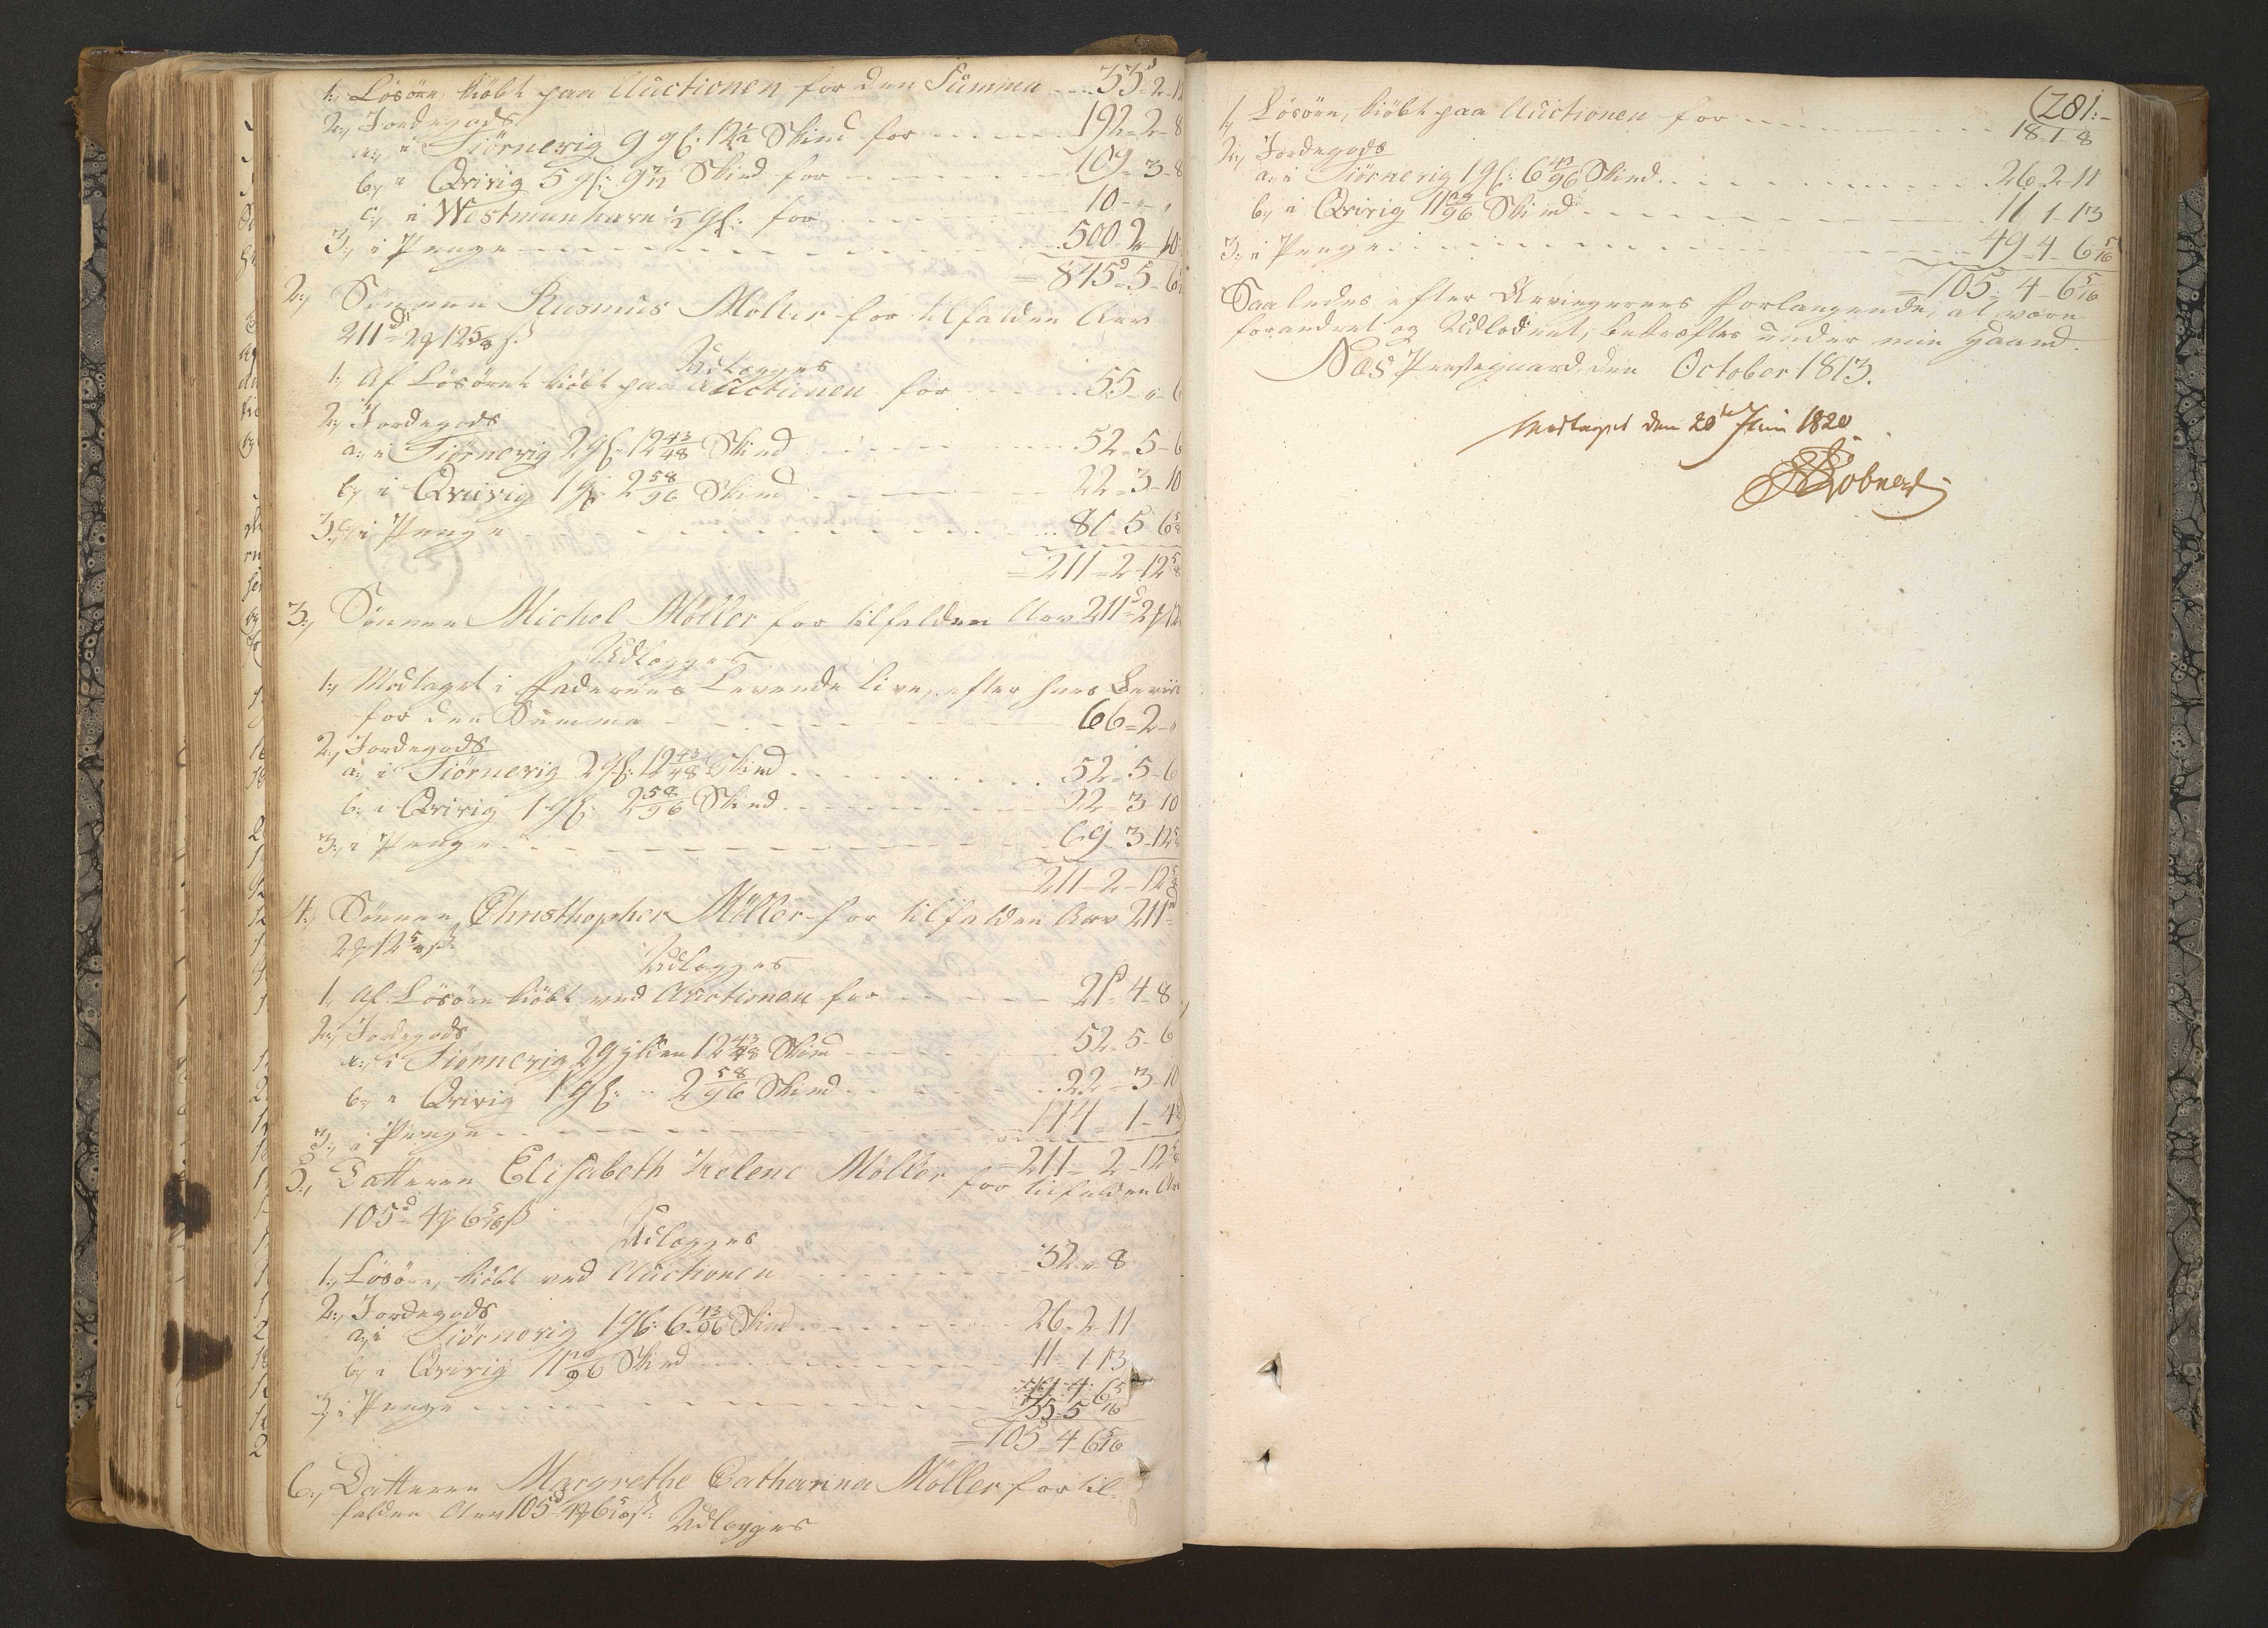 1, Løsøre kiøbt paa Auctionen for den Summa 33d-2-12
2, Jordegods
a, i Tiørnevig 9 gl: 12 1/2 Skind for 192-2-8
b, i Qvivig 5 gl: 9 7/12 Skind for 109-3-8
c, i Westmanhavn 1/2 gl: for 10-"-"
3, i Penge 500-2-10
=845d-5-6
2, Sønnen Rasmus Møller for tilfalden Arv
211d-2g 12 5/8 ß
Udlægges
1, Af Løsøret kiøbt paa Auctionen for 55-"-6
2, Jordegods
a, i Tiørnevig 2 gl: 12 43/48 Skind 52-5-6
b, i Qvivig 1 gl: 2 58/96 Skind 22-3-10
3, i Penge 81-5-6 5/8
=211-2-12 5/8
3, Sønnen Michel Møller for tilfalden Arv 211d-2g 12
Udlægges
1, Modtaget i Faderens Levende Live, efter hans Beviis
for den Summa 66-2-"
2, Jordegods
a, i Tiørnevig 2 gl: 12 43/48 Skind 52-5-6
b, i Qvivig 1 gl: 2 58/96 Skind 22-3-10
3, i Penge 69-3-12 5/8
211-2-12 5/8
4, Sønnen Christhopher Møller for tilfalden Arv 211d=
2g 12 5/8 ß
Udlægges
1, Af Løsøre kiøbt ved Auctionen for 21d-4-8
2, Jordegods
a, i Tiørnevig 2 gylden 12 43/48 Skind 52-5-6
b, i Qvivig 1 gl: 2 58/96 Skind 22-3-10
3, i Penge 114-1-4
=211-2-12 5/8
5, Datteren Elisabeth Helene Møller for tilfalden Arv
105d-4g 6 5/16 ß
Udlægges
1, Løsøre, kiøbt ved Auctionen 32-"-8
2, Jordegods
a, i Tiørnevig 1 gl: 6 43/96 Skind 26-2-11
b, i Qvivig 11 29/96 Skind 11-1-13
3, i Penge 35-5-6 5/16
=105-4-6 5/16
6, Datteren Margrethe Catharina Møller for til-
falden Arv 105d 4g 6 5/16 ß. Udlægges
(281:-
1, Løsøre, kiøbt paa Auctionen for 18-1-8
2, Jordegods
a, i Tiørnevig 1 gl: 6 43/96 Skind 26-2-11
b, i Qvivig 11 29/96 Skind 11-1-13
3, i Penge 49-4-6 5/16
=105-4-6 5/16
Saaledes efter Arvingernes Forlangende, at være
forandret og Udloddet, bekræftes under min Haand.
Næs Præstegaard, den October 1813.
Modtaget den 20de Juni 1820